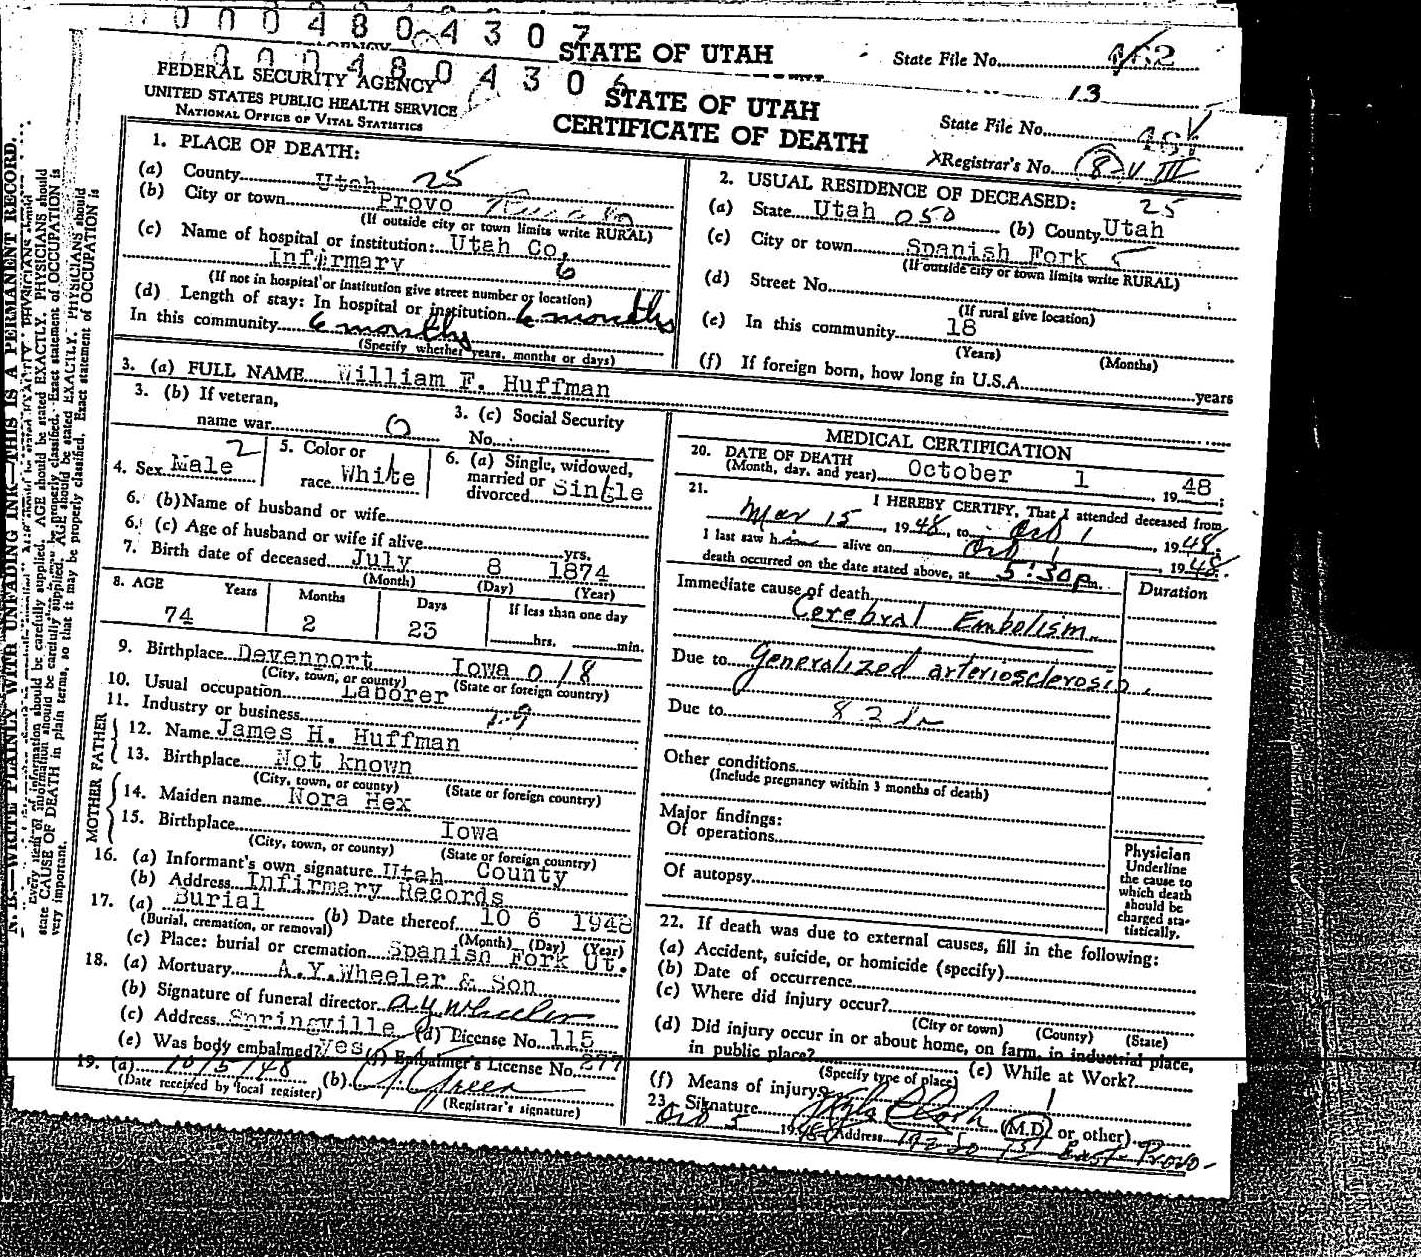 0 0 0 4 8 0 4 3 0 7
STATE OF UTAH
State File No.
13
0 0 0 4 8 0 4 3 0 6
FEDERAL SECURITY AGENCY
UNITED STATES PUBLIC HEALTH SERVICE
NATIONAL OFFICE OF VITAL STATISTICS
STATE OF UTAH
CERTIFICATE OF DEATH
State File No.
Registrar's No. 82 V III
N. B.—WRITE PLAINLY WITH UNFADING INK—THIS IS A PERMANENT RECORD.
Every item of information should be carefully supplied. AGE should be stated EXACTLY. PHYSICIANS should
state CAUSE OF DEATH in plain terms, so that it may be properly classified. Exact statement of OCCUPATION is
very important.
1. PLACE OF DEATH:
(a) County Utah 25
(b) City or town Provo Rural
(If outside city or town limits write RURAL)
(c) Name of hospital or institution: Utah Co.
Infirmary 6
(If not in hospital or institution give street number or location)
(d) Length of stay: In hospital or institution 6 months
In this community 6 months
(Specify whether years, months or days)
2. USUAL RESIDENCE OF DECEASED: 25
(a) State Utah 050 (b) County Utah
(c) City or town Spanish Fork
(If outside city or town limits write RURAL)
(d) Street No.
(If rural give location)
(e) In this community 18
(Years) (Months)
(f) If foreign born, how long in U.S.A. years
3. (a) FULL NAME William F. Huffman
3. (b) If veteran,
name war O
3. (c) Social Security
No.
4. Sex Male 2
5. Color or
race White
6. (a) Single, widowed,
married or
divorced Single
6. (b) Name of husband or wife
6. (c) Age of husband or wife if alive yrs.
7. Birth date of deceased July 8 1874
(Month) (Day) (Year)
8. AGE Years Months Days If less than one day
74 2 23 hrs. min.
9. Birthplace Devenport Iowa 018
(City, town, or county) (State or foreign country)
10. Usual occupation Laborer
11. Industry or business
FATHER
12. Name James H. Huffman
13. Birthplace Not known
(City, town, or county) (State or foreign country)
MOTHER
14. Maiden name Nora Hex
15. Birthplace Iowa
(City, town, or county) (State or foreign country)
16. (a) Informant's own signature Utah County
(b) Address Infirmary Records
17. (a) Burial (b) Date thereof 10 6 1948
(Burial, cremation, or removal) (Month) (Day) (Year)
(c) Place: burial or cremation Spanish Fork Ut.
18. (a) Mortuary A.Y.Wheeler & Son
(b) Signature of funeral director A Y Wheeler
(c) Address Springville (d) License No. 115
(e) Was body embalmed? Yes (f) Embalmer's License No. 277
19. (a) 10/5/48 (b)
(Date received by local register) (Registrar's signature)
MEDICAL CERTIFICATION
20. DATE OF DEATH
(Month, day, and year) October 1 1948;
21. I HEREBY CERTIFY, That I attended deceased from
Mar 15, 1948, to Oct 1, 1948.
I last saw him alive on Oct 1, 1948.
death occurred on the date stated above, at 5:30 p m.
Duration
Immediate cause of death
Cerebral Embolism
Due to Generalized arteriosclerosis.
Due to
Other conditions
(Include pregnancy within 3 months of death)
Major findings:
Of operations
Of autopsy
Physician
Underline
the cause to
which death
should be
charged sta-
tistically.
22. If death was due to external causes, fill in the following:
(a) Accident, suicide, or homicide (specify)
(b) Date of occurrence
(c) Where did injury occur?
(City or town) (County) (State)
(d) Did injury occur in or about home, on farm, in industrial place,
in public place? (e) While at Work?
(Specify type of place)
(f) Means of injury?
23. Signature (M.D. or other)
Oct 5 1948 Address East Provo